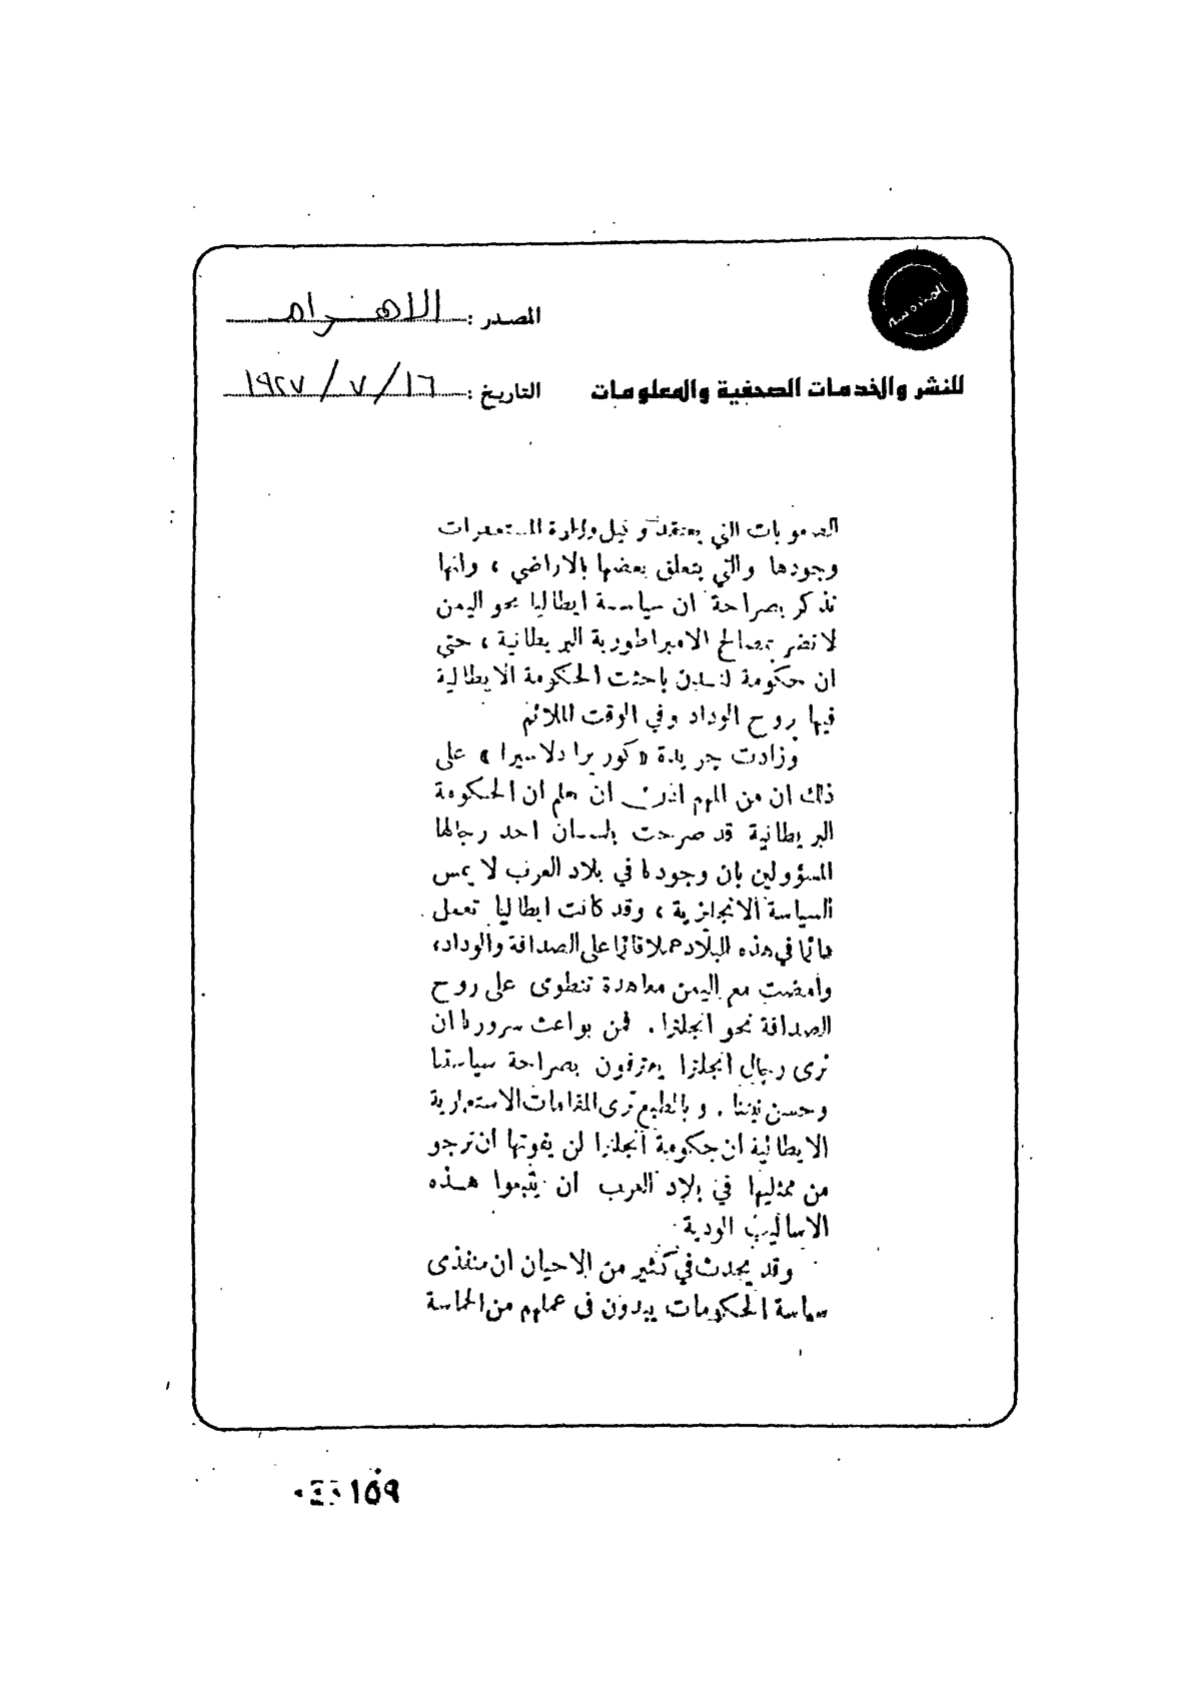 المصدر : الاهرام
للنشر والخدمات الصحفية والمعلومات
التاريخ : ١٦ / ٧ / ١٩٢٧
الصعوبات التي يعتقد وكيل وزارة المستعمرات
وجودها والتي يتعلق بعضها بالاراضي ، وانها
تذكر بصراحة ان سياسة ايطاليا نحو اليمن
لا تضر بمصالح الامبراطورية البريطانية ، حتى
ان حكومة لندن باحثت الحكومة الايطالية
فيها بروح الوداد وفي الوقت الملائم
وزادت جريدة « كوريرا دلاسيرا » على
ذلك ان من المهم ان نعلم ان الحكومة
البريطانية قد صرحت بلسان احد رجالها
المسؤولين بان وجودنا في بلاد العرب لا يمس
السياسة الانجليزية ، وقد كانت ايطاليا تعمل
دائما في هذه البلاد عملا قائما على الصداقة والوداد،
وامضت مع اليمن معاهدة تنطوى على روح
الصداقة نحو انجلترا . فمن بواعث سرورنا ان
نرى رجال انجلترا يعترفون بصراحة سياستنا
وحسن نيتنا . وبالطبع ترى المقامات الاستعمارية
الايطالية ان حكومة انجلترا لن يفوتها ان ترجو
من ممثليها في بلاد العرب ان يتبعوا هذه
الاساليب الودية
وقد يحدث في كثير من الاحيان ان منفذى
سياسة الحكومات يبدون في عملهم من الحماسة
١٥٩